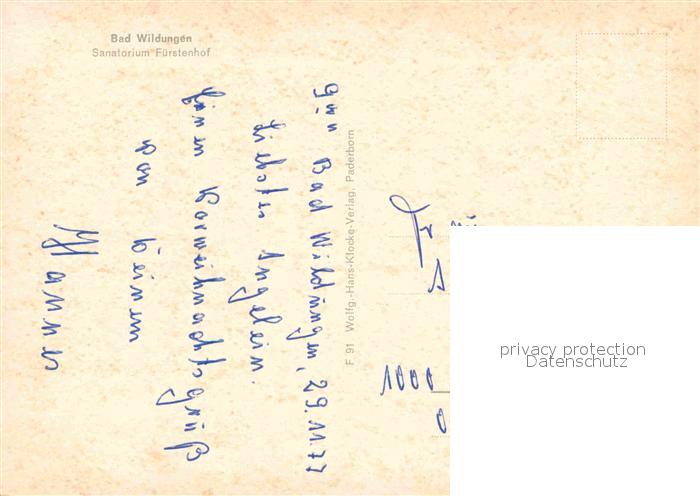 Bad Wildungen
Sanatorium Fürstenhof
Bad Wildungen, 29.11.77
Liebstes Engelein.
Einen Vorweihnachtsgruß
von Deinem
Manne
F 91 Wolfg.-Hans-Klocke-Verlag, Paderborn
1000
privacy protection
Datenschutz